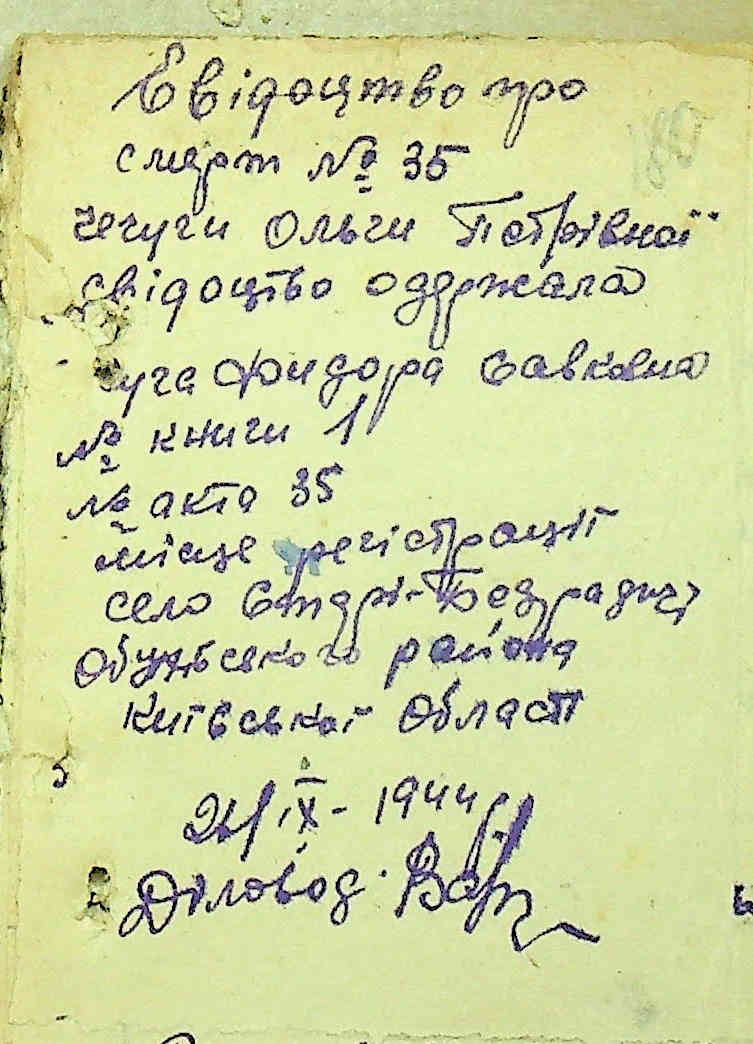 Свідоцтво про
смерт № 35
Чечуги Ольги Петрівної
свідоцтво одержала
уга Фидора Савковна
№ книги 1
№ акта 35
місце регістрації
село Старі-Безрадичі
Обухівського района
Київської області
IX - 1944
Діловод.
180